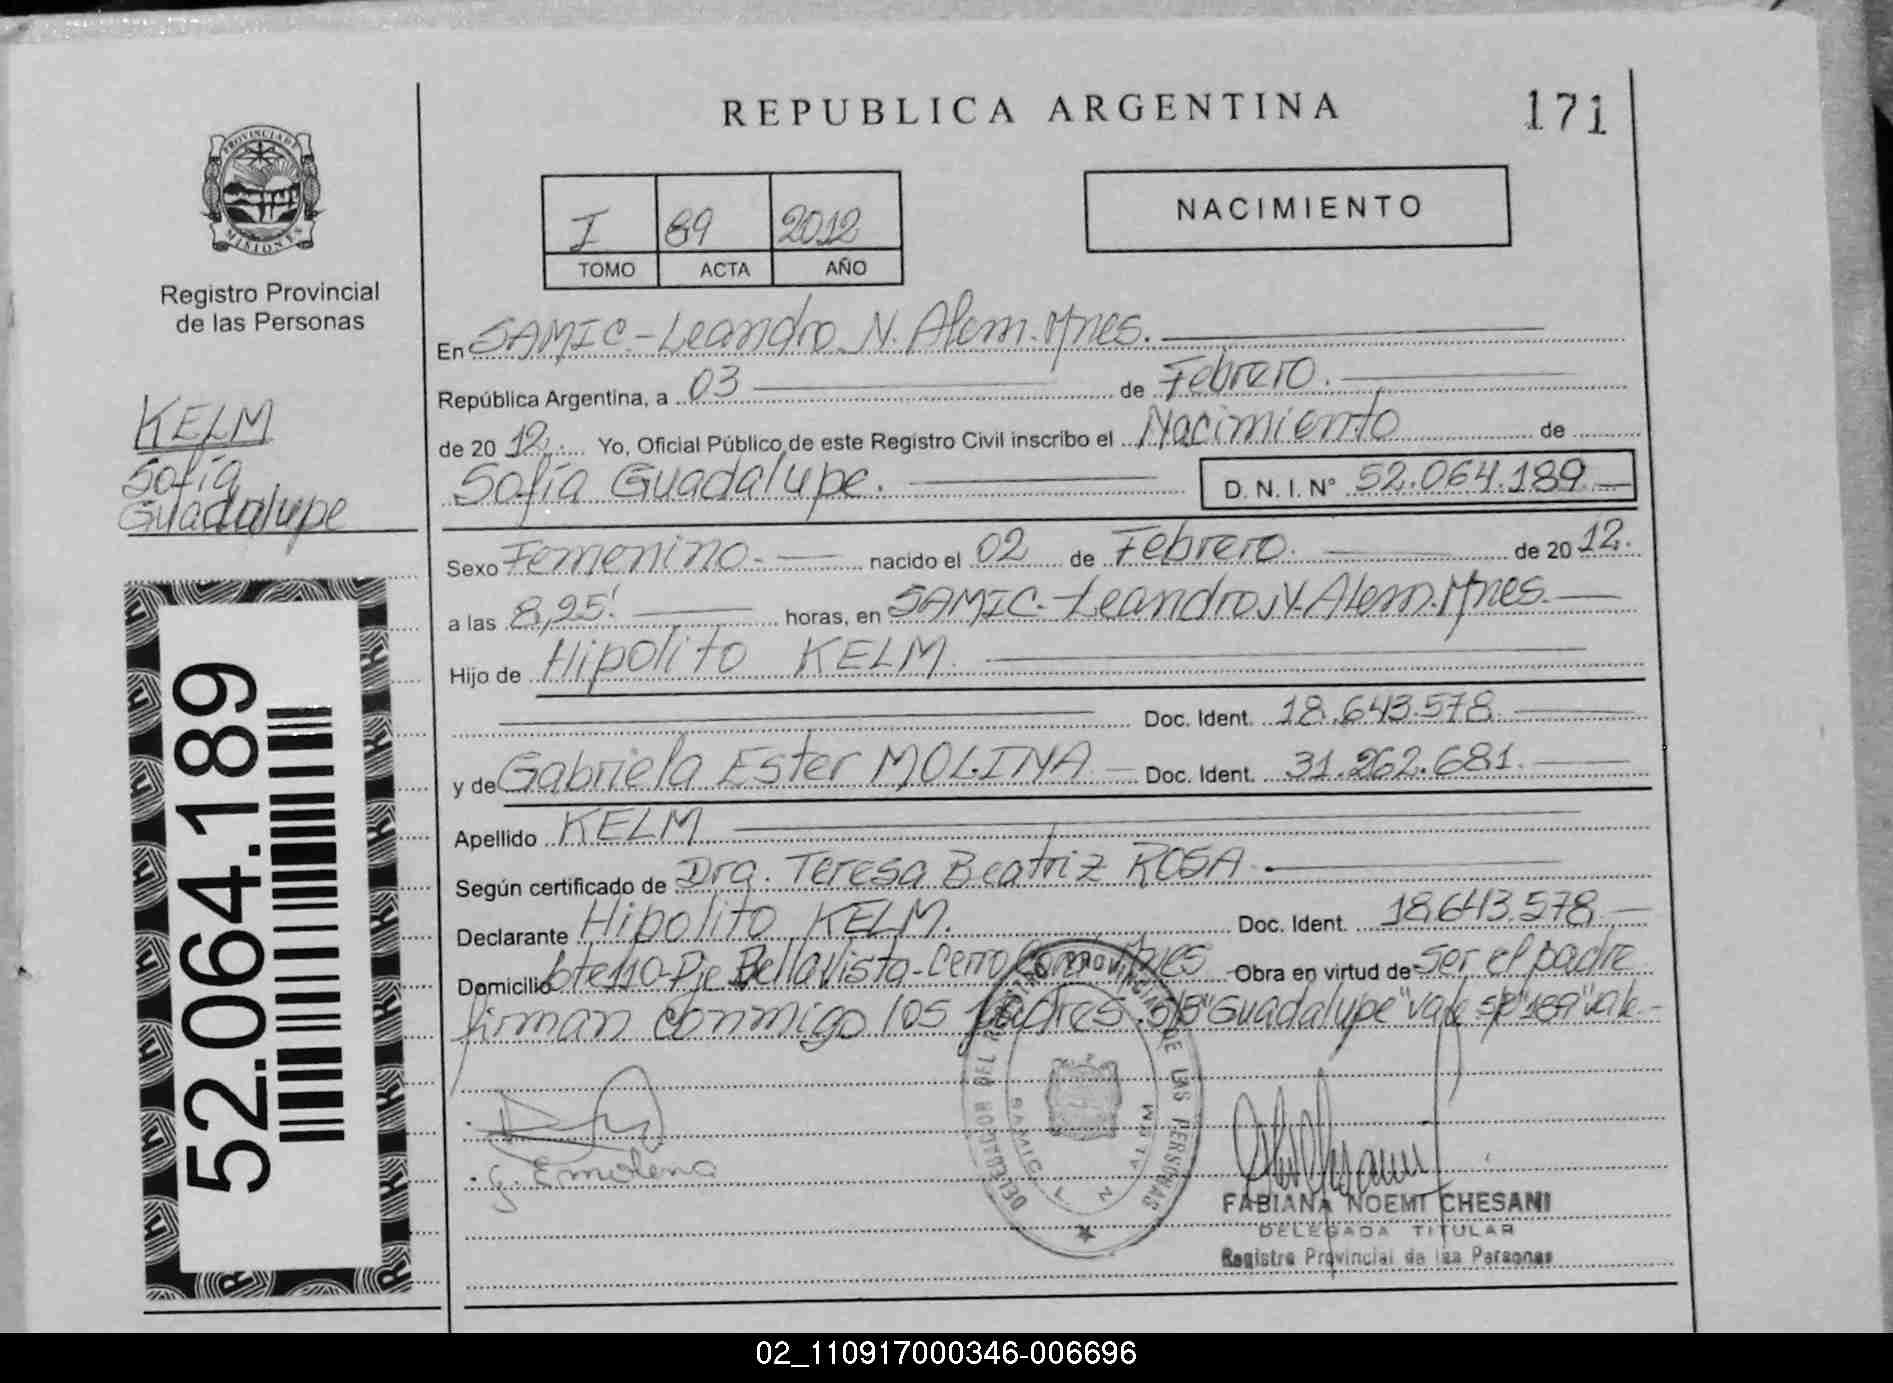 REPUBLICA ARGENTINA
171
PROVINCIA DE
MISIONES
Registro Provincial
de las Personas
I 89 2012
TOMO ACTA AÑO
NACIMIENTO
KELM
Sofía
Guadalupe
En SAMIC - Leandro N. Alem. Mnes.
República Argentina, a 03 de Febrero.
de 2012. Yo, Oficial Público de este Registro Civil inscribo el Nacimiento de
Sofía Guadalupe. D.N.I. N° 52.064.189
Sexo Femenino. nacido el 02 de Febrero. de 2012.
a las 8,25' horas, en SAMIC. Leandro N. Alem. Mnes.
Hijo de Hipolito KELM.
Doc. Ident. 18.643.578
y de Gabriela Ester MOLINA Doc. Ident. 31.262.681.
Apellido KELM
Según certificado de Dra. Teresa Beatriz ROSA.
Declarante Hipolito KELM. Doc. Ident. 18.643.578
Domicilio Lote 110-Pje Bella Vista-Cerro Mnes Obra en virtud de Ser el padre
firman conmigo los padres. S/B "Guadalupe" vale S/B "189" vale.
52.064.189
DELEGACION DEL REGISTRO PROVINCIAL DE LAS PERSONAS
SAMIC L N ALEM
FABIANA NOEMI CHESANI
DELEGADA TITULAR
Registro Provincial de las Personas
02_110917000346-006696